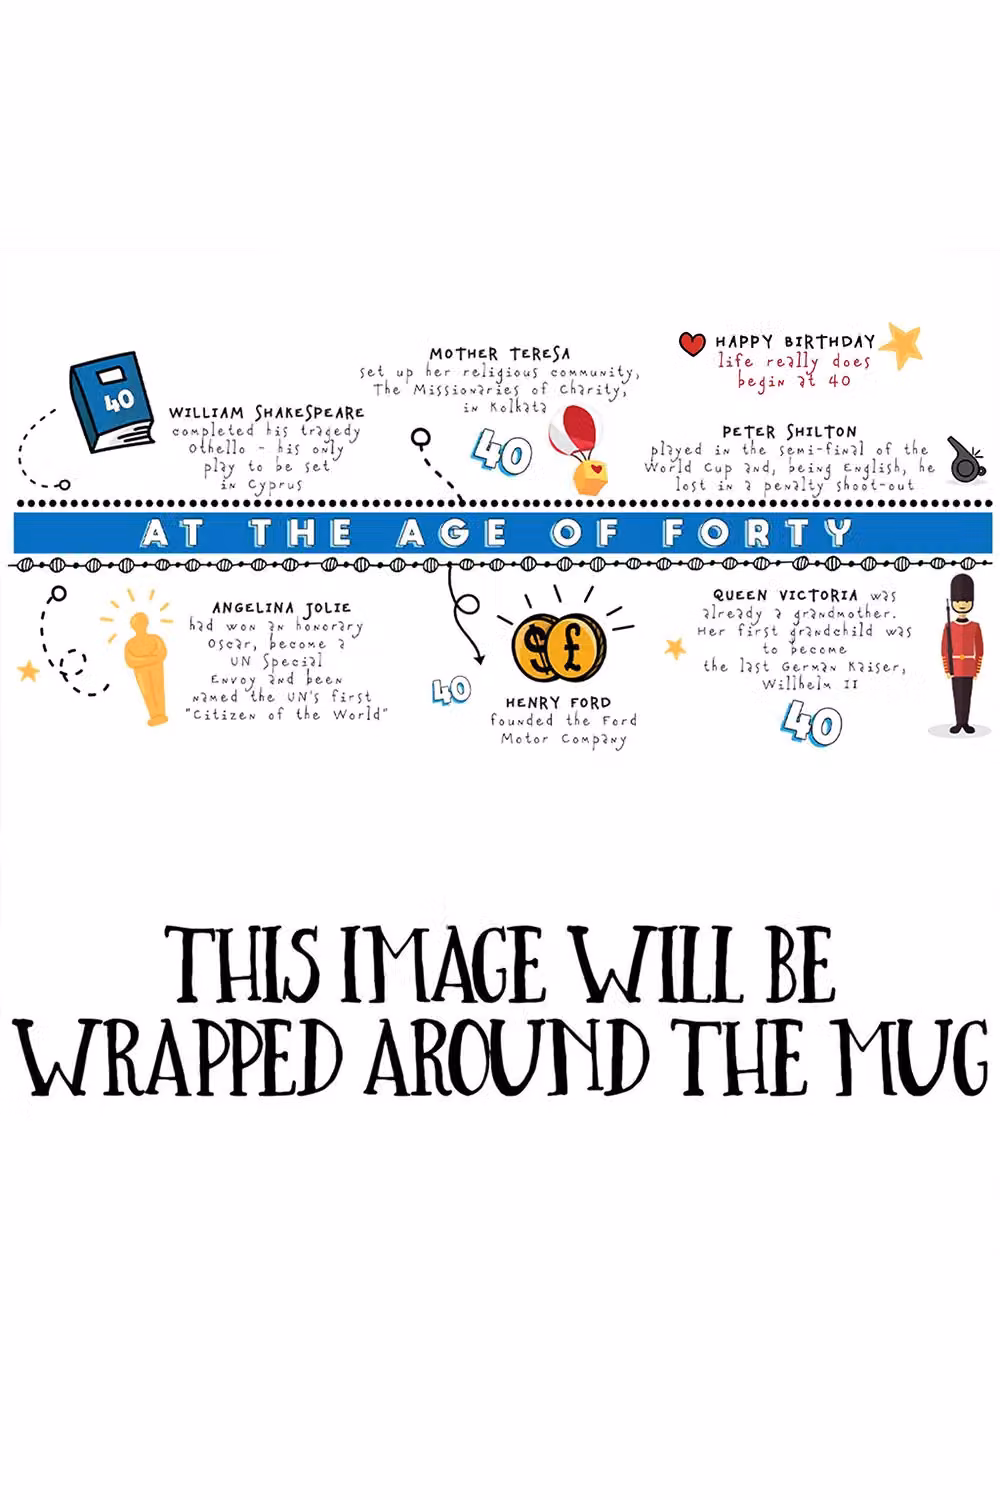 40
WILLIAM SHAKESPEARE
completed his tragedy
Othello - his only
play to be set
in Cyprus
MOTHER TERESA
set up her religious community,
The Missionaries of Charity,
in Kolkata
40
HAPPY BIRTHDAY
life really does
begin at 40
PETER SHILTON
played in the semi-final of the
World Cup and, being English, he
lost in a penalty shoot-out
AT THE AGE OF FORTY
ANGELINA JOLIE
had won an honorary
Oscar, become a
UN Special
Envoy and been
named the UN's first
"Citizen of the World"
40
$ £
HENRY FORD
founded the Ford
Motor Company
QUEEN VICTORIA was
already a grandmother.
Her first grandchild was
to become
the last German Kaiser,
Willhelm II
40
THIS IMAGE WILL BE
WRAPPED AROUND THE MUG